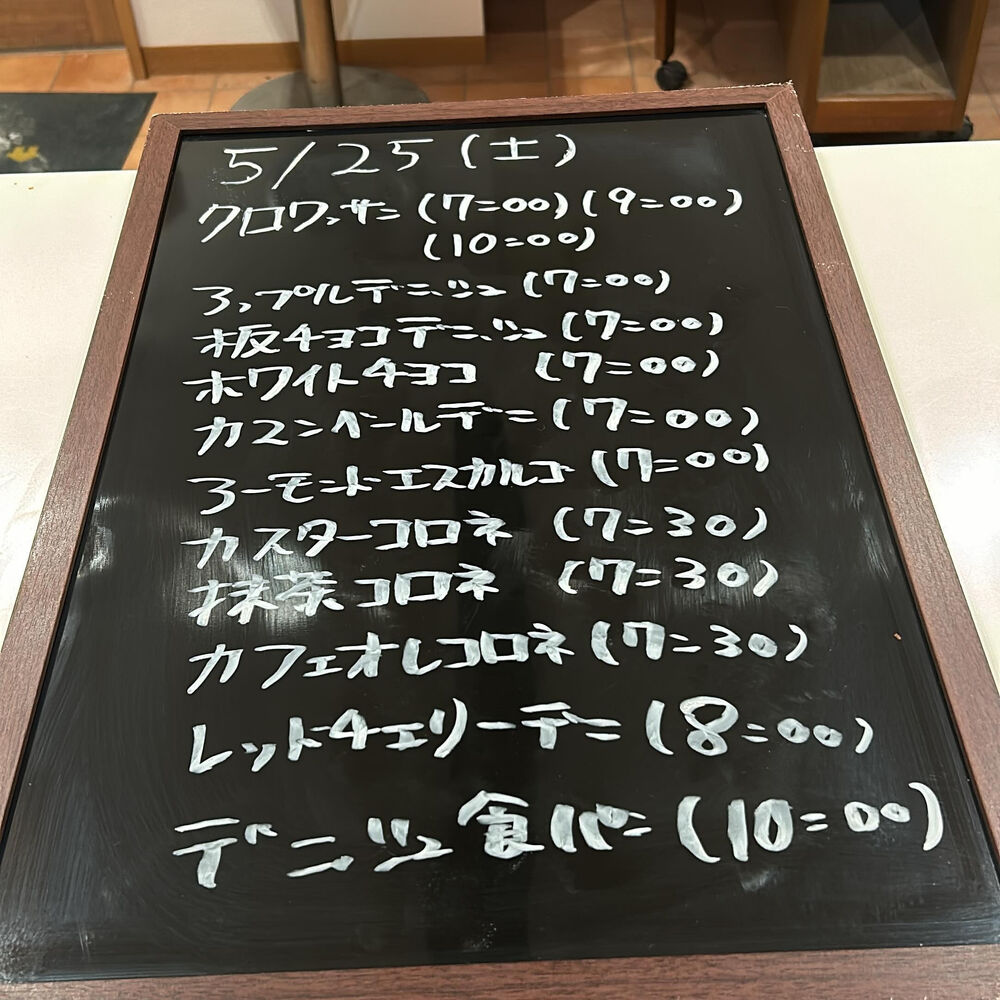 5/25(土)
クロワッサン(7=00)(9=00)
(10=00)
アップルデニッシュ(7=00)
板チョコデニッシュ(7=00)
ホワイトチョコ (7=00)
カマンベールデニ(7=00)
アーモンドエスカルゴ(7=00)
カスターコロネ (7=30)
抹茶コロネ (7=30)
カフェオレコロネ(7=30)
レットチェリーデニ(8=00)
デニッシュ食パン(10=00)